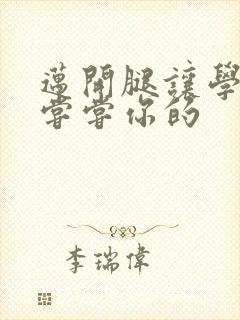 邁開腿讓學
嘗嘗你的
李瑞偉